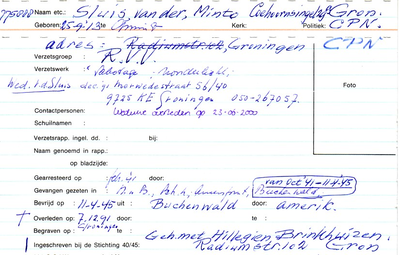 Naam etc.: Sluis, van der, Minto Coehoornsingel Gron.
Geboren: 25-9-'13 te Kerk: Politiek: CPN.
adres: Radiumstr. Groningen CPN
Verzetsgroep : R.V.V.
Verzetswerk : Sabotage, mondeling
wed. v.d. Sluis dec. 91 Merwedestraat 56/40
9725 KE Groningen 050-267057.
Contactpersonen: Weduwe overleden op 23-06-2000
Schuilnaam :
Verzetsrapp. ingel. dd. : bij:
Naam genoemd in rapp.:
op bladzijde:
Foto
Gearresteerd op : '41 door:
van Oct '41-11-4-'45
Gevangen gezeten in : Amersfoort, Buchenwald
Bevrijd op : 11-4-'45 uit : Buchenwald door : amerik.
† Overleden op : 7.12.91 te :
Begraven op : Groningen te :
Ingeschreven bij de Stichting 40/45:
Geh. met Hillegien Brinkhuizen.
Radiumstr. 102 Gron